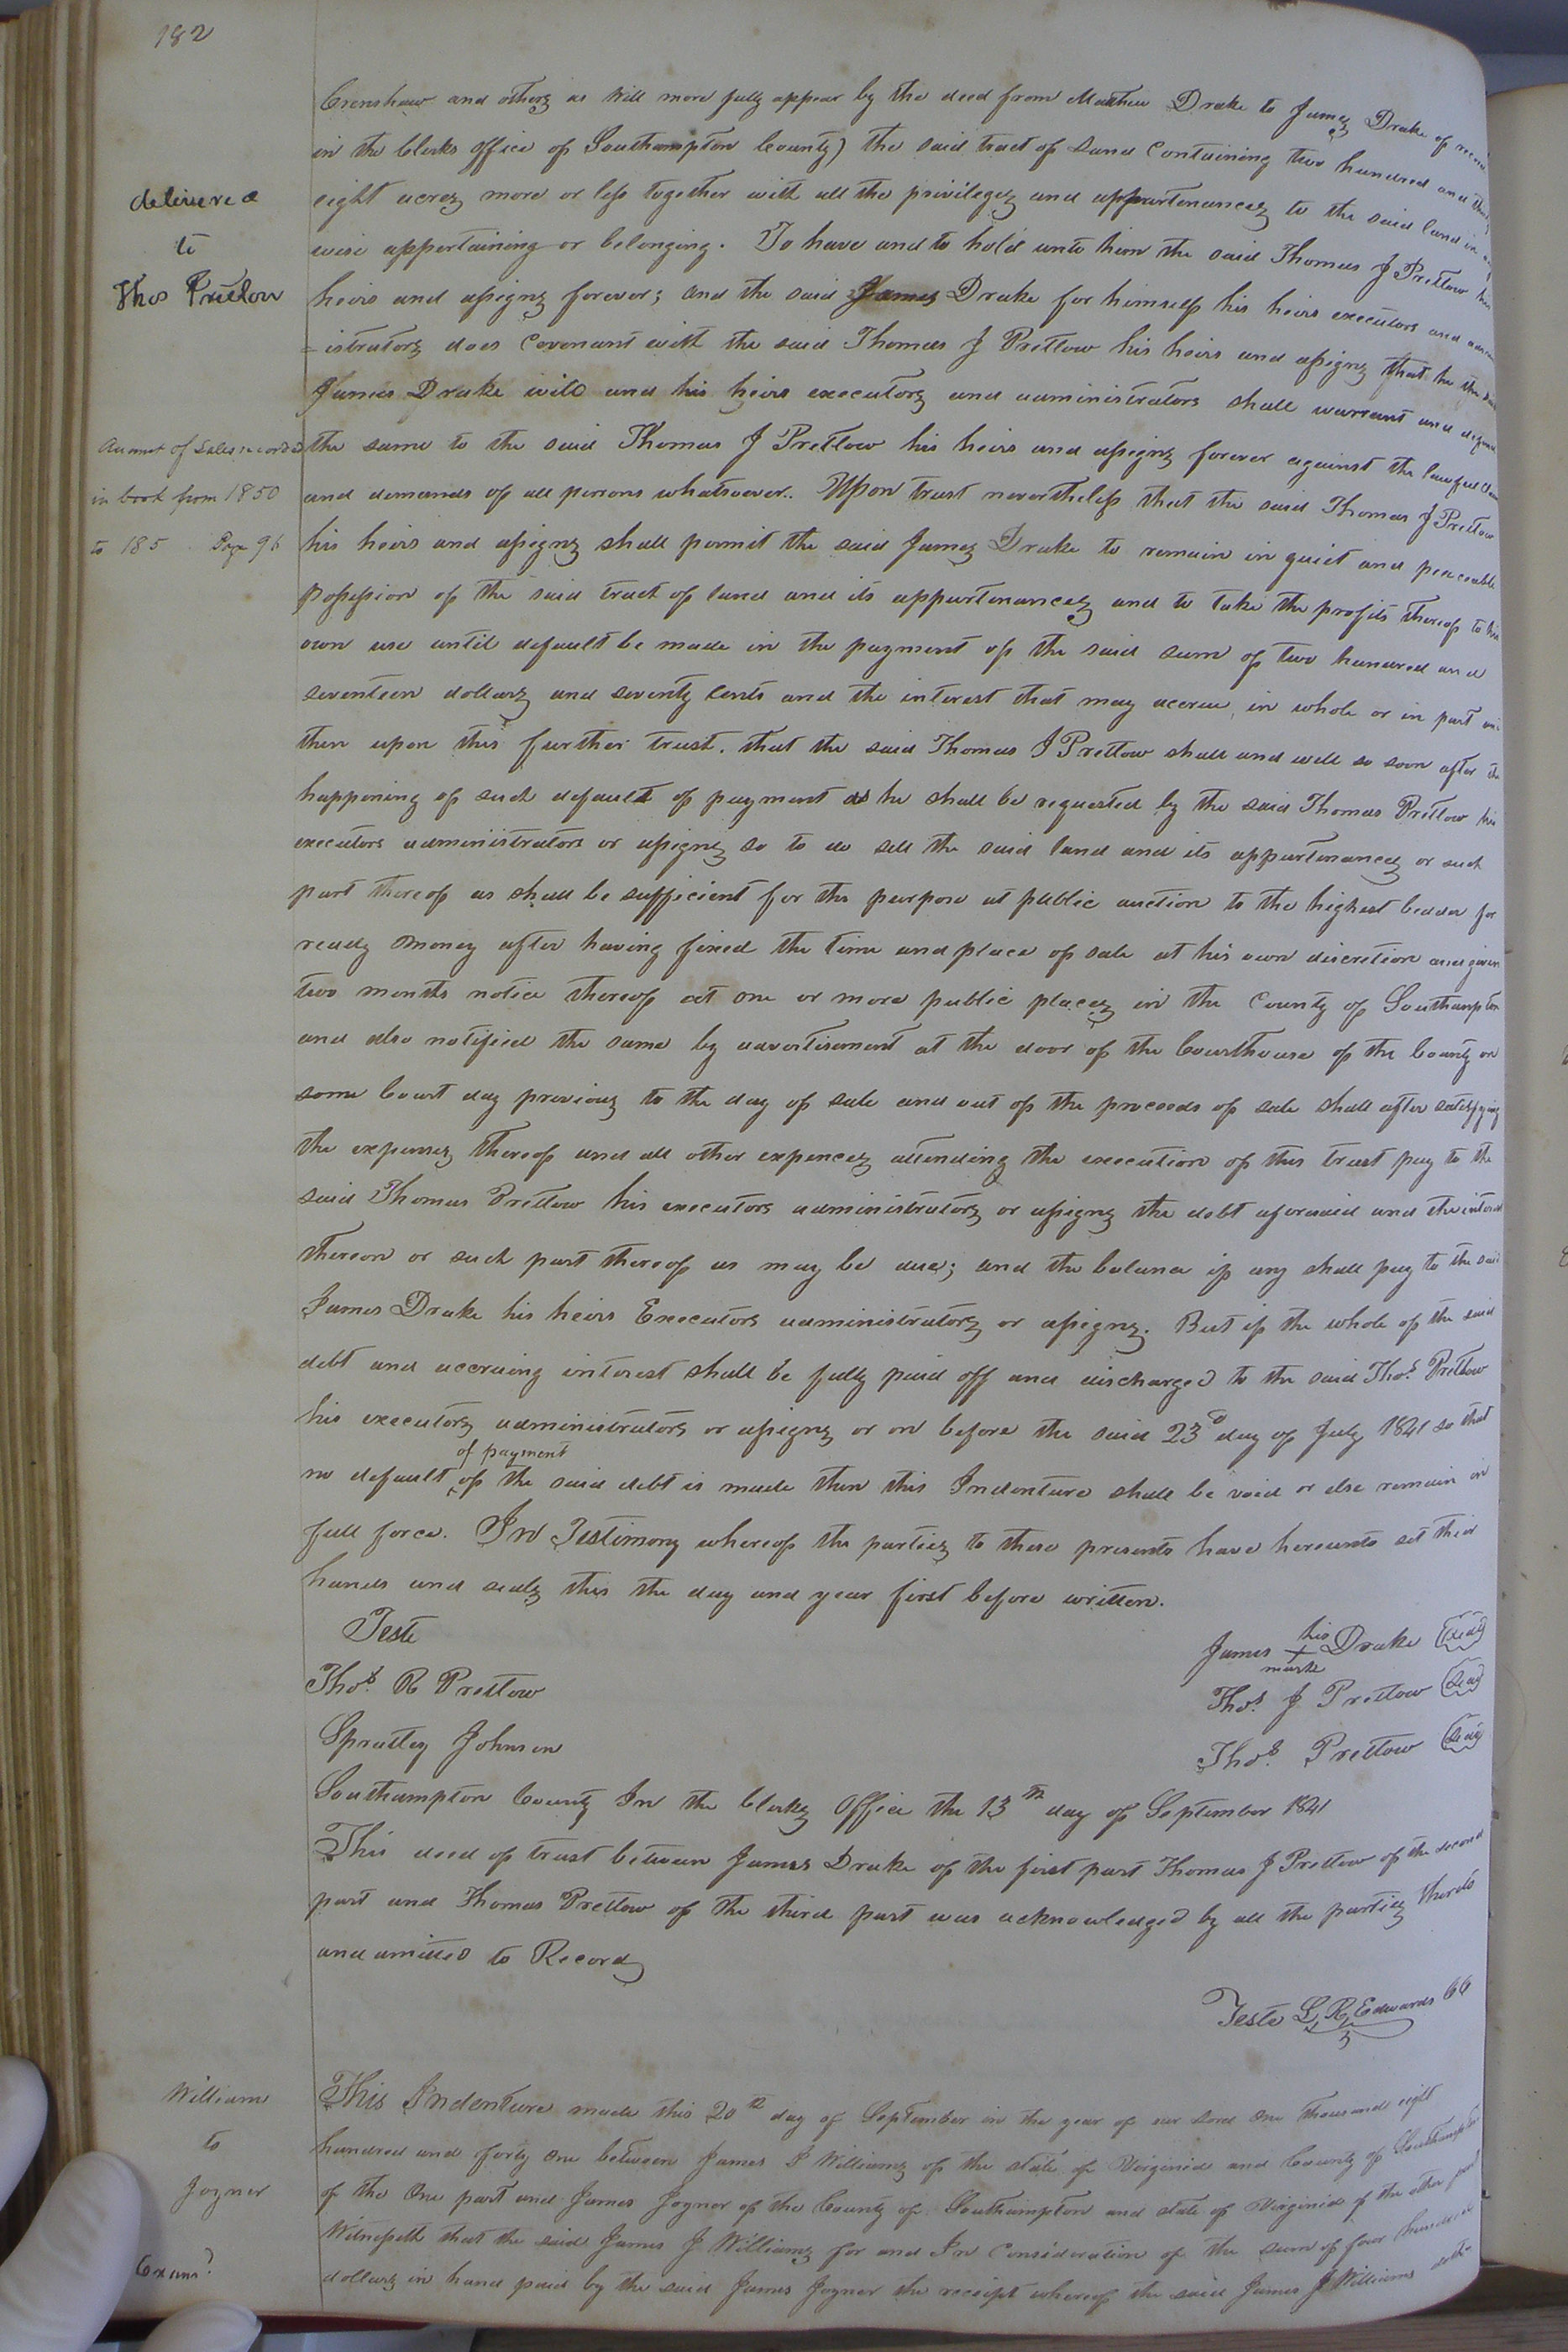 182
Crenshaw and others as will more fully appear by the deed from Matthew Drake to James Drake of
in the Clerks office of Southampton County) the said tract of Land Containing two hundred and thirty
eight acres more or less together with all the privileges and appurtenances to the said land in
wise appertaining or belonging. To have and to hold unto him the said Thomas J Pretlow his
heirs and assigns forever; and the said James Drake for himself his heirs executors and admin
=istrators does Covenant with the said Thomas J Pretlow his heirs and assigns that he the said
James Drake will and his heirs executors and administrators shall warrant and defend
the same to the said Thomas J Pretlow his heirs and assigns forever against the lawful
and demands of all persons whatsoever. Upon trust nevertheless that the said Thomas J Pretlow
his heirs and assigns shall permit the said James Drake to remain in quiet and peaceable
possession of the said tract of land and its appurtenances and to take the profits thereof to his
own use until default be made in the payment of the said sum of two hundred and
seventeen dollars and seventy cents and the interest that may accrue, in whole or in part and
then upon this further trust. that the said Thomas J Pretlow shall and will so soon after the
happening of such default of payment as he shall be requested by the said Thomas Pretlow his
executors administrators or assigns so to do sell the said land and its appurtenances or such
part thereof as shall be sufficient for the purpose at public auction to the highest bidder for
ready money after having fixed the time and place of sale at his own discretion and given
two months notice thereof at one or more public places in the County of Southampton
and also notified the same by advertisement at the door of the Courthouse of the County on
some Court day previous to the day of sale and out of the proceeds of sale shall after satisfying
the expenses thereof and all other expences attending the execution of this trust pay to the
said Thomas Pretlow his executors administrators or assigns the debt aforesaid and the interest
thereon or such part thereof as may be due; and the balance if any shall pay to the said
James Drake his heirs Executors administrators or assigns. But if the whole of the said
debt and accruing interest shall be fully paid off and discharged to the said Thos. Pretlow
his executors administrators or assigns or on before the said 23d day of July 1841 so that
of payment
no default of the said debt is made then this Indenture shall be void or else remain in
full force. In Testimony whereof the parties to these presents have hereunto set their
hands and seals this the day and year first before written.
Teste
Thos. R Pretlow
Spratley Johnson
James his Drake (Seal)
mark
Thos. J Pretlow (Seal)
Thos. Pretlow (Seal)
Southampton County In the Clerks Office the 13th day of September 1841
This deed of trust between James Drake of the first part Thomas J Pretlow of the second
part and Thomas Pretlow of the third part was acknowledged by all the parties thereto
and amitted to Record
Teste L. R. Edwards CC
This Indenture made this 20th day of September in the year of our Lord One thousand eight
hundred and forty one between James J Williams of the state of Virginia and County of Southampton
of the One part and James Joyner of the County of Southampton and state of Virginia of the other part
Witnesseth that the said James J Williams for and In Consideration of the sum of four hundred
dollars in hand paid by the said James Joyner the receipt whereof the said James J Williams doth
delivered
to
Thos Pretlow
Account of Sales recorded
in book from 1850
to 185 Page 96
Williams
to
Joyner
Examd.